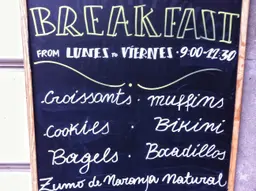 BREAKFAST
FROM LUNES TO VIERNES · 9:00-12:30
Croissants · muffins
Cookies · Bikini
Bagels · Bocadillos
Zumo de Naranja Natural